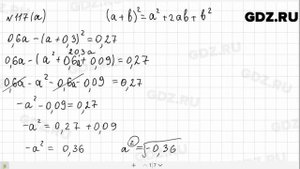 №117(а) (a+b)²=a²+2ab+b² GDZ.RU
0,6a-(a+0,3)²=0,27
2·0,3·a
0,6a-(a²+0,6a+0,09)=0,27
0,6a-a²-0,6a-0,09=0,27
-a²-0,09=0,27
-a²=0,27+0,09
-a²=0,36 a=√-0,36
GDZ.RU